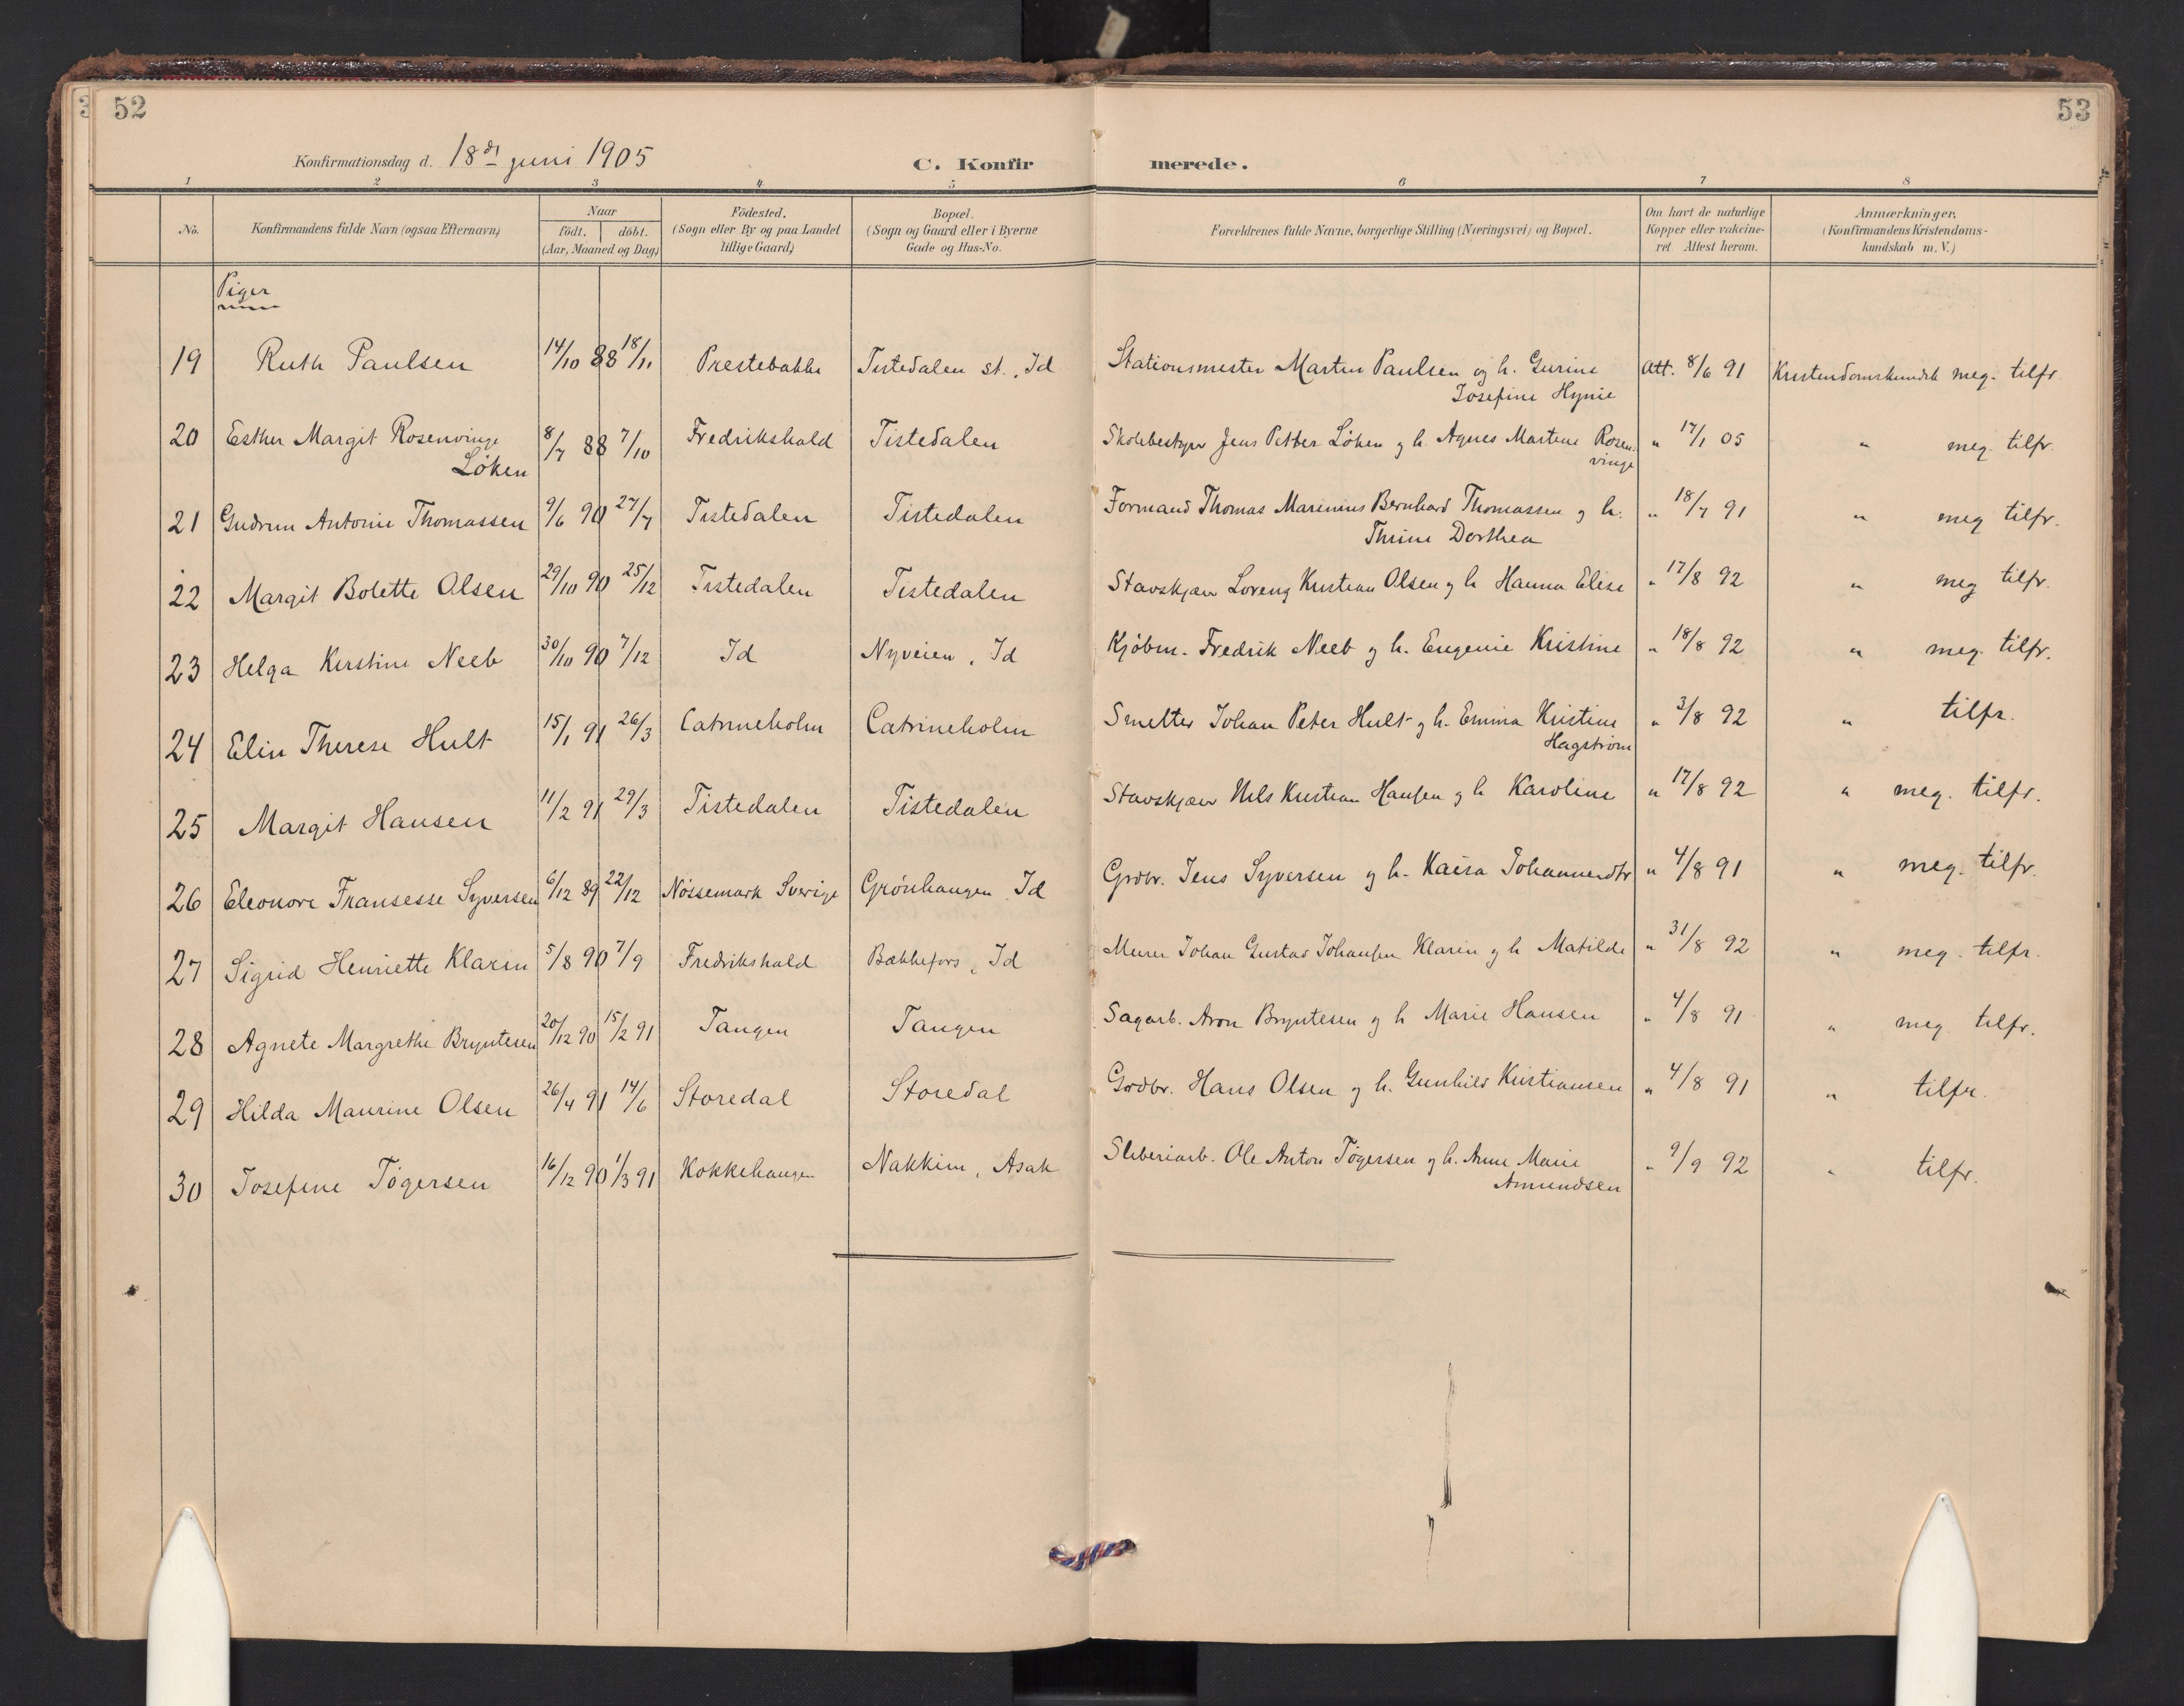 52
53
Konfirmationsdag d. 18de juni 1905
C. Konfirmerede.
1 2 3 4 5 6 7 8
No.
Konfirmandens fulde Navn (ogsaa Efternavn)
Naar
födt. döbt.
(Aar, Maaned og Dag)
Födested.
(Sogn eller By og paa Landet
tillige Gaard)
Bopæl.
(Sogn og Gaard eller i Byerne
Gade og Hus-No.
Forældrenes fulde Navne, borgerlige Stilling (Næringsvei) og Bopæl.
Om havt de naturlige
Kopper eller vakcine-
ret Attest herom.
Anmærkninger,
(Konfirmandens Kristendoms-
kundskab m. V.)
Piger
19 Ruth Paulsen 14/10 88 18/11 Prestebakke Tistedalen st., Id Stationsmester Martin Paulsen og h. Gurine Att. 8/6 91 Kristendomskundsk meg. tilfr
Josefine Hynie
20 Esther Margit Rosenvinge 8/7 88 7/10 Fredrikshald Tistedalen Skolebestyrer Jens Petter Löken og h. Agnes Martine Rosen- " 17/1 05 " meg. tilfr.
Löken vinge
21 Gudrun Antonie Thomassen 9/6 90 27/7 Tistedalen Tistedalen Formand Thomas Marinius Bernhard Thomassen og h. " 18/7 91 " meg tilfr.
Thrine Dorthea
22 Margit Bolette Olsen 29/10 90 25/12 Tistedalen Tistedalen Stavskjær Lorenz Kristian Olsen og h Hanna Elise " 17/8 92 " meg tilfr.
23 Helga Kirstine Neeb 30/10 90 7/12 Id Nyveien, Id Kjöbm. Fredrik Neeb og h. Eugenie Kristine " 18/8 92 " meg. tilfr.
24 Elin Therese Hult 15/1 91 26/3 Catrineholm Catrineholm Smelter Johan Peter Hult og h. Emma Kristine " 3/8 92 " tilfr.
Hagström
25 Margit Hansen 11/2 91 29/3 Tistedalen Tistedalen Stavskjær Nils Kristian Hansen og h Karoline " 17/8 92 " meg. tilfr.
26 Eleonore Fransesse Syversen 6/12 89 22/12 Nössemark Sverige Grönhaugen Id Grdbr. Jens Syversen og h. Kaisa Johannesdtr " 4/8 91 " meg. tilfr.
27 Sigrid Henriette Klarin 5/8 90 7/9 Fredrikshald Bækkefors, Id Murer Johan Gustav Johansen Klarin og h Matilde " 31/8 92 " meg. tilfr.
28 Agnete Margrethe Bryntesen 20/12 90 15/2 91 Tangen Tangen Sagarb. Aron Bryntesen og h Marie Hansen " 4/8 91 " meg tilfr.
29 Hilda Maurine Olsen 26/4 91 14/6 Storedal Storedal Grdbr. Hans Olsen og h. Gunhild Kristiansen " 4/8 91 " tilfr.
30 Josefine Tögersen 16/12 90 1/3 91 Kokkehaugen Nakkim, Asak Sliberiarb. Ole Anton Tögersen og h. Anne Marie " 9/9 92 " tilfr.
Amundsen